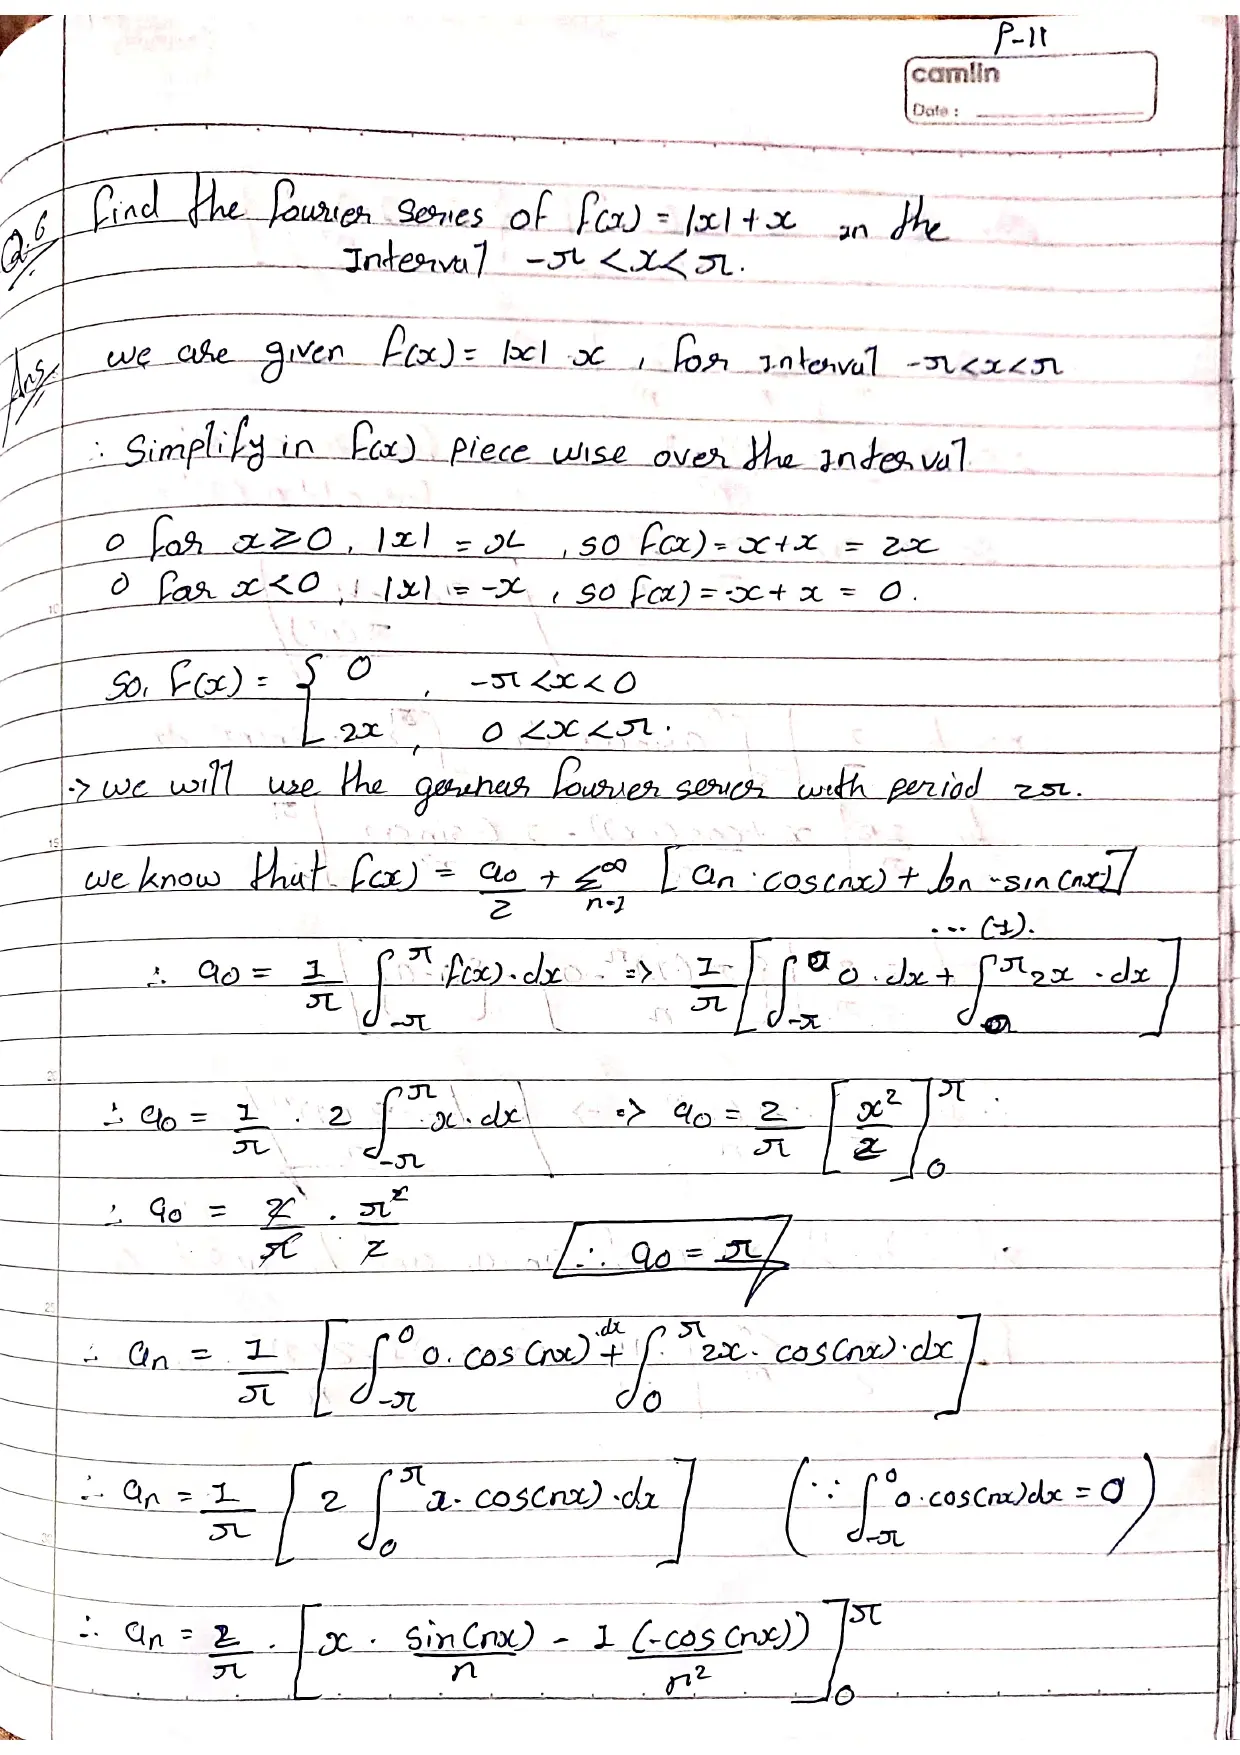 P-11
camlin
Date :
Q.6 find the fourier series of f(x) = |x| + x in the
Interval -π < x < π.
Ans we are given f(x) = |x| x , for interval -π < x < π
∴ Simplify in f(x) piece wise over the interval
o for x ≥ 0, |x| = x , so f(x) = x + x = 2x
o for x < 0, |x| = -x , so f(x) = -x + x = 0.
So, f(x) = { 0 , -π < x < 0
2x , 0 < x < π.
-> we will use the fourier series with period 2π.
we know that f(x) = a0/2 + Σ^∞ n=1 [an · cos(nx) + bn · sin(nx)]
... (1).
∴ a0 = 1/π ∫_-π^π f(x)·dx => 1/π [∫_-π^0 0·dx + ∫_0^π 2x ·dx]
∴ a0 = 1/π · 2 ∫_-π^π x·dx => a0 = 2/π [x²/2]_0^π
∴ a0 = 2/π · π²/2 ∴ a0 = π
∴ an = 1/π [∫_-π^0 0·cos(nx)·dx + ∫_0^π 2x · cos(nx)·dx]
∴ an = 1/π [2 ∫_0^π x· cos(nx)·dx] (∵ ∫_-π^0 0·cos(nx)dx = 0)
∴ an = 2/π · [x · sin(nx)/n - 1 (-cos(nx))/n²]_0^π